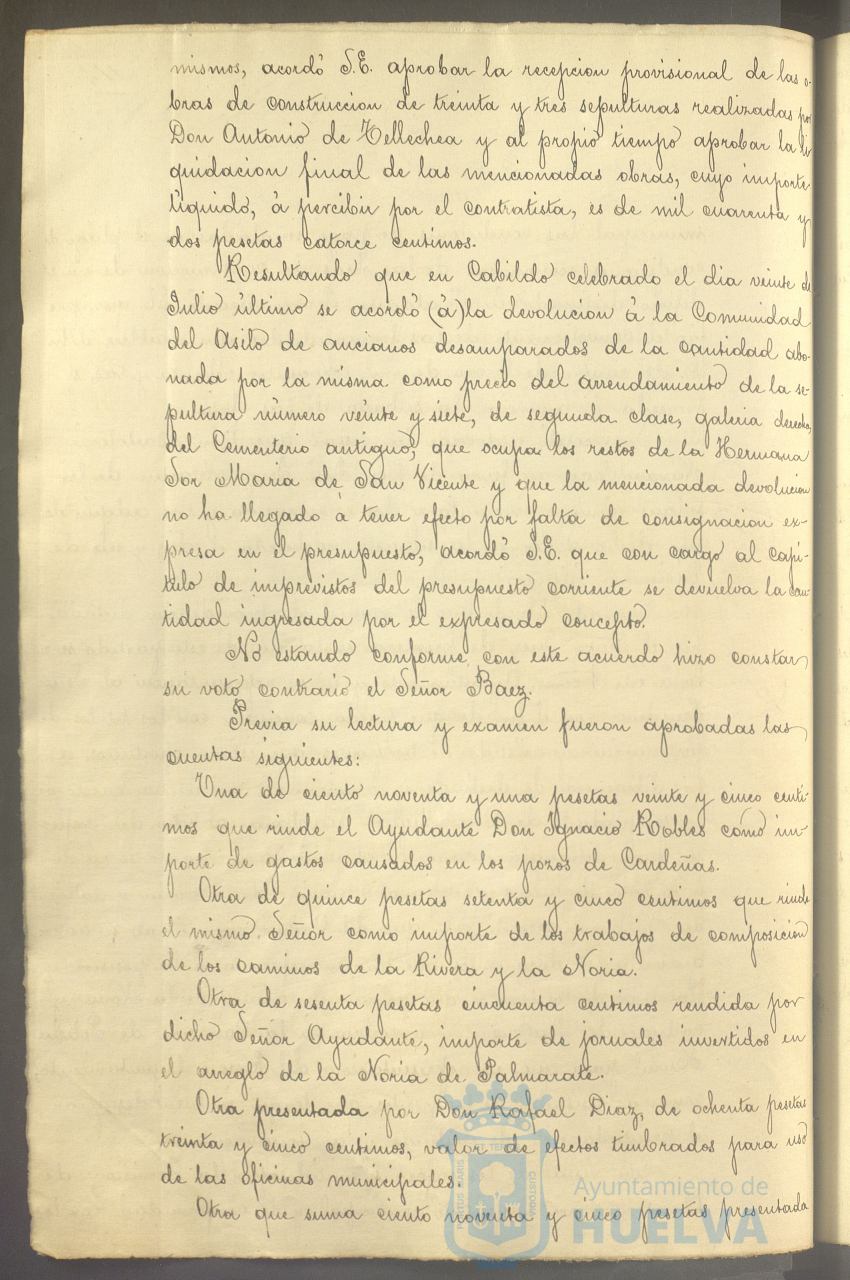 mismos, acordó S.E. aprobar la recepcion provisional de las o-
bras de construccion de treinta y tres sepulturas realizadas por
Don Antonio de Tellechea y al propio tiempo aprobar la li-
quidacion final de las mencionadas obras, cuyo importe
líquido, á percibir por el contratista, es de mil cuarenta y
dos pesetas catorce centimos.
Resultando que en Cabildo celebrado el dia veinte de
Julio último se acordó (á) la devolucion á la Comunidad
del Asilo de ancianos desamparados de la cantidad abo-
nada por la misma como precio del arrendamiento de la se-
pultura número veinte y siete, de segunda clase, galeria derecha,
del Cementerio antiguo, que ocupa los restos de la Hermana
Sor Maria de San Vicente y que la mencionada devolucion
no ha llegado á tener efecto por falta de consignacion ex-
presa en el presupuesto, acordó S.E. que con cargo al capi-
tulo de imprevistos del presupuesto corriente se devuelva la can-
tidad ingresada por el expresado concepto.
No estando conforme con este acuerdo hizo constar
su voto contrario el Señor Baez.
Previa su lectura y examen fueron aprobadas las
cuentas siguientes:
Una de ciento noventa y una pesetas veinte y cinco centi-
mos que rinde el Ayudante Don Ignacio Robles como im-
porte de gastos causados en los pozos de Cardeñas.
Otra de quince pesetas setenta y cinco centimos que rinde
el mismo Señor como importe de los trabajos de composicion
de los caminos de la Rivera y la Noria.
Otra de sesenta pesetas cincuenta centimos rendida por
dicho Señor Ayudante, importe de jornales invertidos en
el arreglo de la Noria de Palmarate.
Otra presentada por Don Rafael Diaz, de ochenta pesetas
treinta y cinco centimos, valor de efectos timbrados para uso
de las oficinas municipales.
Otra que suma ciento noventa y cinco pesetas presentada
Ayuntamiento de
HUELVA